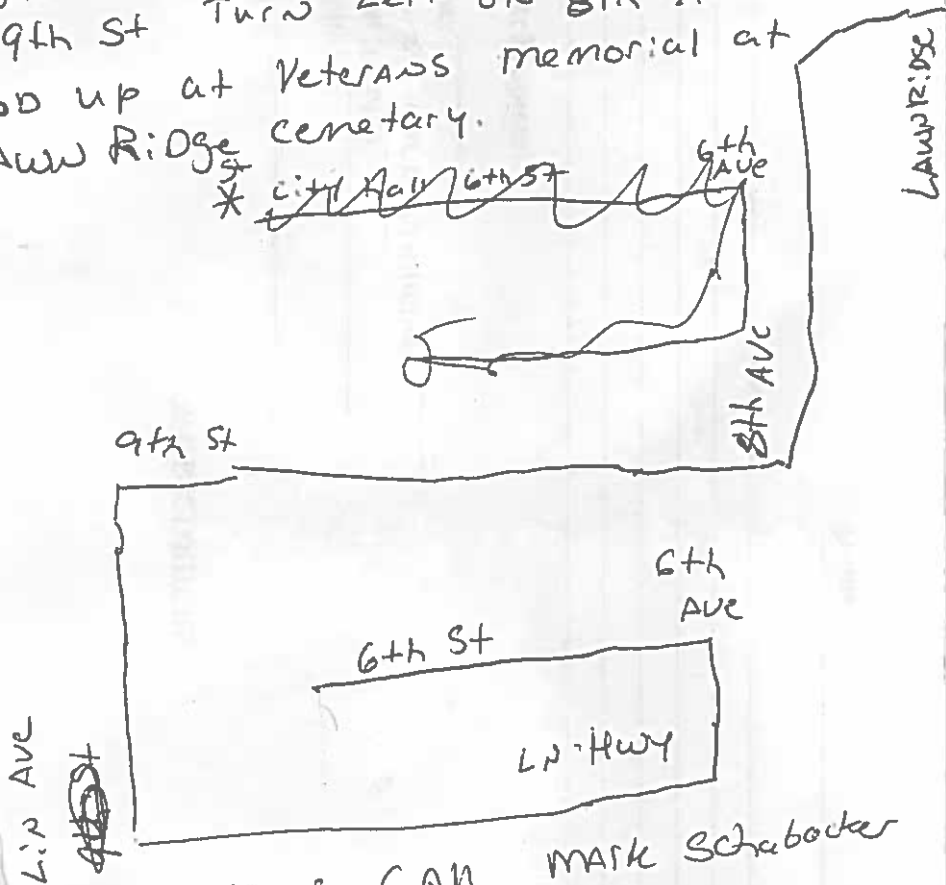 9th St Turn Left on 8th
up at Veterans memorial at
Ridge cemetary.
* City Hall 6th St 6th Ave
LawnRidge
8th Ave
9th St
6th Ave
6th St
LN-Hwy
Ave
St
Call Mark Schabacker